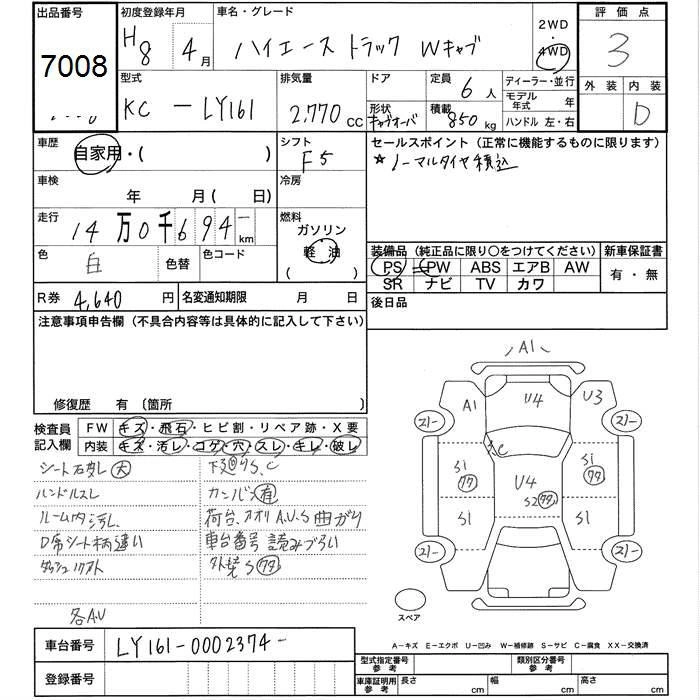 出品番号
7008
初度登録年月
H8 4月
車名・グレード
ハイエース トラック Wキャブ
2WD
・
4WD
評価点
3
型式
KC-LY161
排気量
2,770 CC
ドア
形状
キャブオーバ
定員
6人
積載
850 kg
ディーラー・並行
モデル年式 年
ハンドル 左・右
外装 内装
D
車歴
自家用・( )
シフト
F5
セールスポイント (正常に機能するものに限ります)
☆ノーマルタイヤ積込
車検
年 月( 日)
冷房
走行
14万0千694- km
燃料
ガソリン
軽油
( )
色
白
色替
色コード
装備品 (純正品に限り○をつけてください)
新車保証書
PS PW ABS エアB AW
SR ナビ TV カワ
有・無
R券 4,640円
名変通知期限 月 日
後日品
注意事項申告欄 (不具合内容等は具体的に記入して下さい)
修復歴 有 (箇所
検査員
記入欄
FW キズ・飛石・ヒビ割・リペア跡・X要
内装 キズ・汚レ・コゲ・穴・スレ・キレ・破レ
シート破レ大
ハンドルスレ
ルーム内汚レ
D席シート柄違い
各A.U
カンバン有
荷台、アオリA.U.S曲がり
車台番号 読みづらい
A1
A1
U4
U3
21-
21-
S.C
S1
77
S1
77
U4
S2
77
S1
S1
21-
21-
スペア
車台番号
LY161-0002374-
登録番号
A-キズ E-エクボ U-凹み W-補修跡 S-サビ C-腐食 XX-交換済
型式指定番号
参考
類別区分番号
参考
車庫証明用
参考
長さ cm
幅 cm
高さ cm